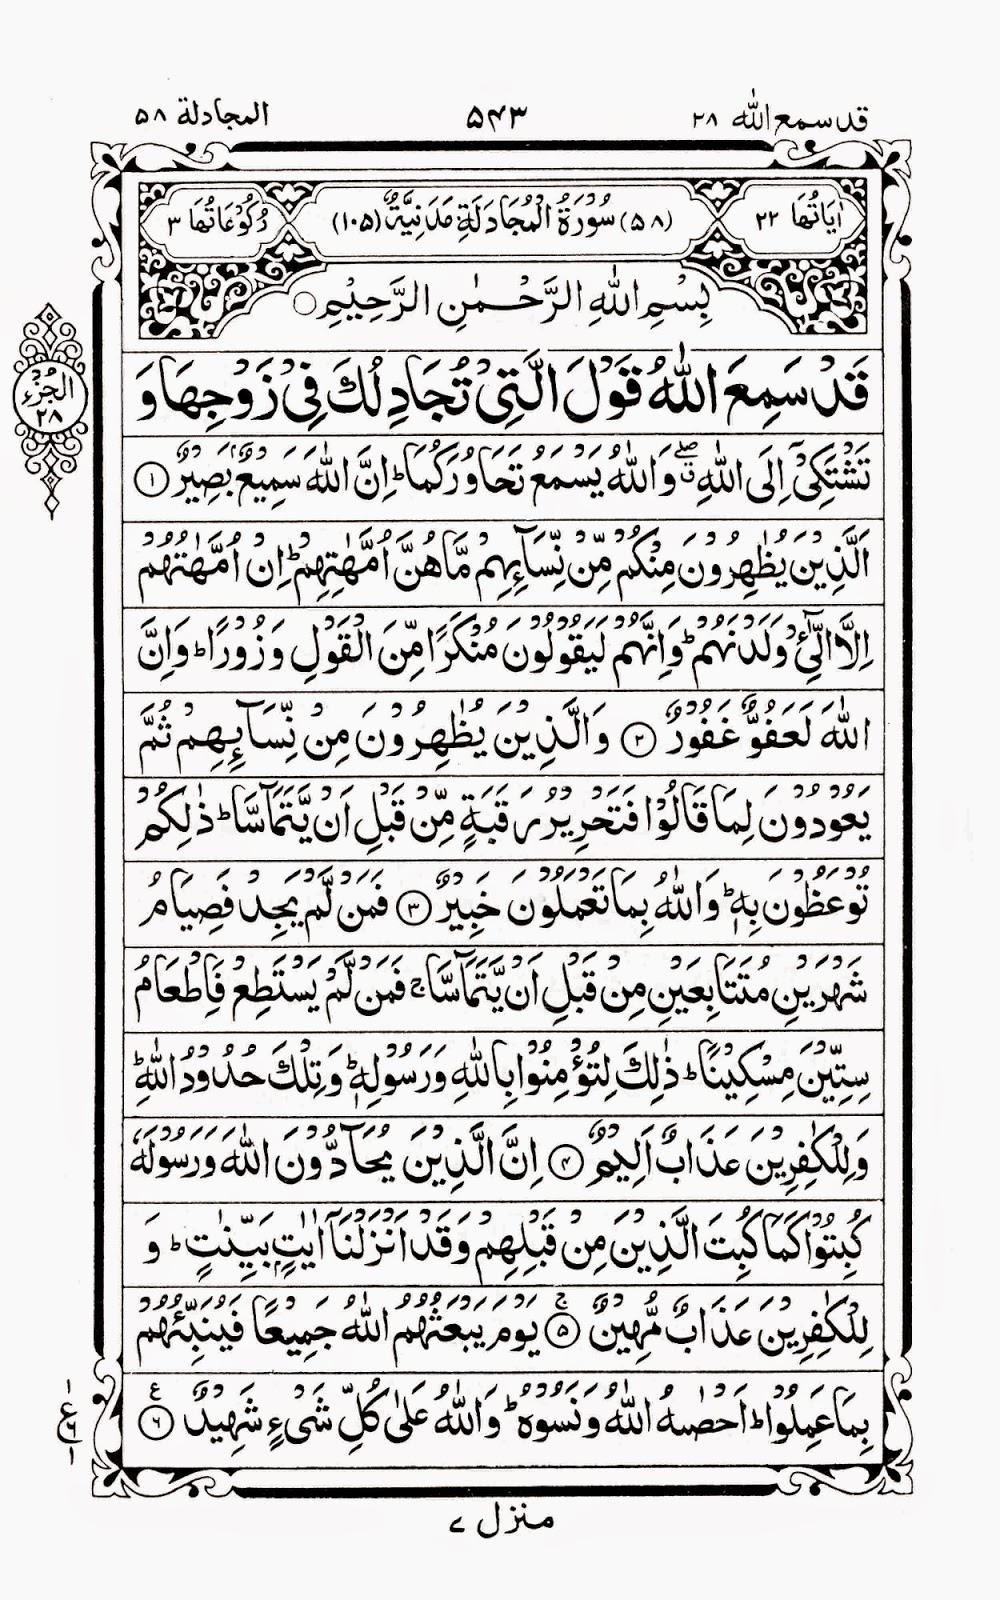 قد سمع الله ۲۸ ۵۴۳ المجادلة ۵۸
اٰيَاتُهَا ۲۲ (۵۸) سُوْرَةُ الْمُجَادَلَةِ مَدَنِيَّةٌ (۱۰۵) رُكُوْعَاتُهَا ۳
بِسْمِ اللّٰهِ الرَّحْمٰنِ الرَّحِيْمِ ○
قَدْ سَمِعَ اللّٰهُ قَوْلَ الَّتِيْ تُجَادِلُكَ فِيْ زَوْجِهَا وَ
تَشْتَكِيْٓ اِلَى اللّٰهِ ۖق وَاللّٰهُ يَسْمَعُ تَحَاوُرَكُمَا ؕ اِنَّ اللّٰهَ سَمِيْعٌۢ بَصِيْرٌ ۱
اَلَّذِيْنَ يُظٰهِرُوْنَ مِنْكُمْ مِّنْ نِّسَآىِٕهِمْ مَّا هُنَّ اُمَّهٰتِهِمْ ؕ اِنْ اُمَّهٰتُهُمْ
اِلَّا الّٰٓـِٔيْ وَلَدْنَهُمْ ؕ وَاِنَّهُمْ لَيَقُوْلُوْنَ مُنْكَرًا مِّنَ الْقَوْلِ وَزُوْرًا ؕ وَاِنَّ
اللّٰهَ لَعَفُوٌّ غَفُوْرٌ ۲ وَالَّذِيْنَ يُظٰهِرُوْنَ مِنْ نِّسَآىِٕهِمْ ثُمَّ
يَعُوْدُوْنَ لِمَا قَالُوْا فَتَحْرِيْرُ رَقَبَةٍ مِّنْ قَبْلِ اَنْ يَّتَمَآسَّا ؕ ذٰلِكُمْ
تُوْعَظُوْنَ بِهٖ ؕ وَاللّٰهُ بِمَا تَعْمَلُوْنَ خَبِيْرٌ ۳ فَمَنْ لَّمْ يَجِدْ فَصِيَامُ
شَهْرَيْنِ مُتَتَابِعَيْنِ مِنْ قَبْلِ اَنْ يَّتَمَآسَّا ۚ فَمَنْ لَّمْ يَسْتَطِعْ فَاِطْعَامُ
سِتِّيْنَ مِسْكِيْنًا ؕ ذٰلِكَ لِتُؤْمِنُوْا بِاللّٰهِ وَرَسُوْلِهٖ ؕ وَتِلْكَ حُدُوْدُ اللّٰهِ ؕ
وَلِلْكٰفِرِيْنَ عَذَابٌ اَلِيْمٌ ۴ اِنَّ الَّذِيْنَ يُحَآدُّوْنَ اللّٰهَ وَرَسُوْلَهٗ
كُبِتُوْا كَمَا كُبِتَ الَّذِيْنَ مِنْ قَبْلِهِمْ وَقَدْ اَنْزَلْنَآ اٰيٰتٍۢ بَيِّنٰتٍ ؕ وَ
لِلْكٰفِرِيْنَ عَذَابٌ مُّهِيْنٌ ۚ ۵ يَوْمَ يَبْعَثُهُمُ اللّٰهُ جَمِيْعًا فَيُنَبِّئُهُمْ
بِمَا عَمِلُوْا ؕ اَحْصٰىهُ اللّٰهُ وَنَسُوْهُ ؕ وَاللّٰهُ عَلٰى كُلِّ شَيْءٍ شَهِيْدٌ ۶ ع
الْجُزْءُ ۲۸
۱ ع ۶ ۱
منزل ۷